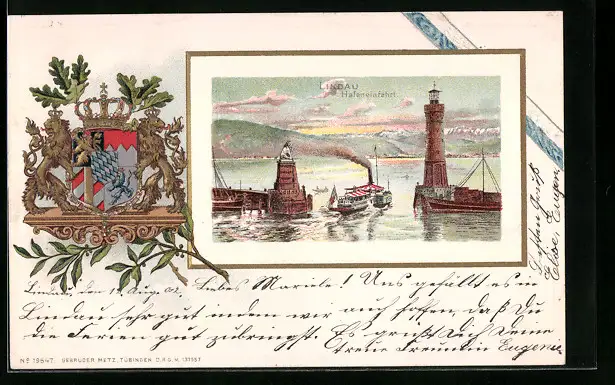 LINDAU
Hafeneinfahrt.
Lindau, den 14. Aug. 02. Liebes Mariele! Uns gefällt es in
Lindau sehr gut indem wir auch hoffen, daß Du
die Ferien gut zubringst. Es grüßt Dich Deine
treue Freundin Eugenie
Besten Gruß
Elise, Eugen.
No 19547. GEBRÜDER METZ, TÜBINGEN D.R.G.M. 131957